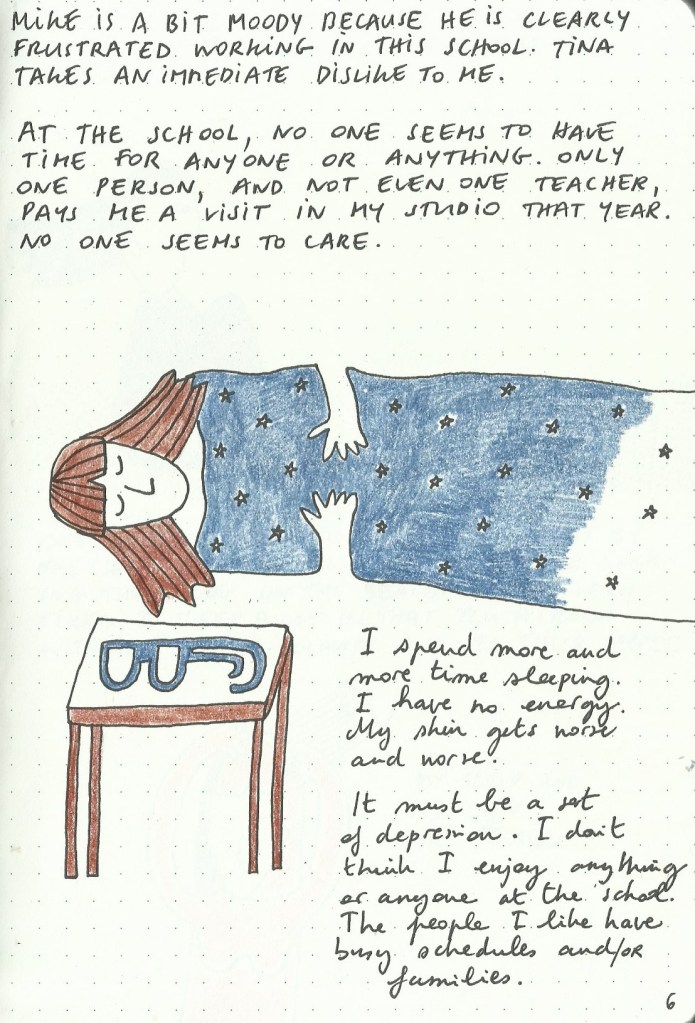 MIKE IS A BIT MOODY BECAUSE HE IS CLEARLY
FRUSTRATED WORKING IN THIS SCHOOL. TINA
TAKES AN IMMEDIATE DISLIKE TO ME.
AT THE SCHOOL, NO ONE SEEMS TO HAVE
TIME FOR ANYONE OR ANYTHING. ONLY
ONE PERSON, AND NOT EVEN ONE TEACHER,
PAYS ME A VISIT IN MY STUDIO THAT YEAR.
NO ONE SEEMS TO CARE.
I spend more and
more time sleeping.
I have no energy.
My skin gets worse
and worse.
It must be a sort
of depression. I don't
think I enjoy anything
or anyone at the school.
The people I like have
busy schedules and/or
families.
6